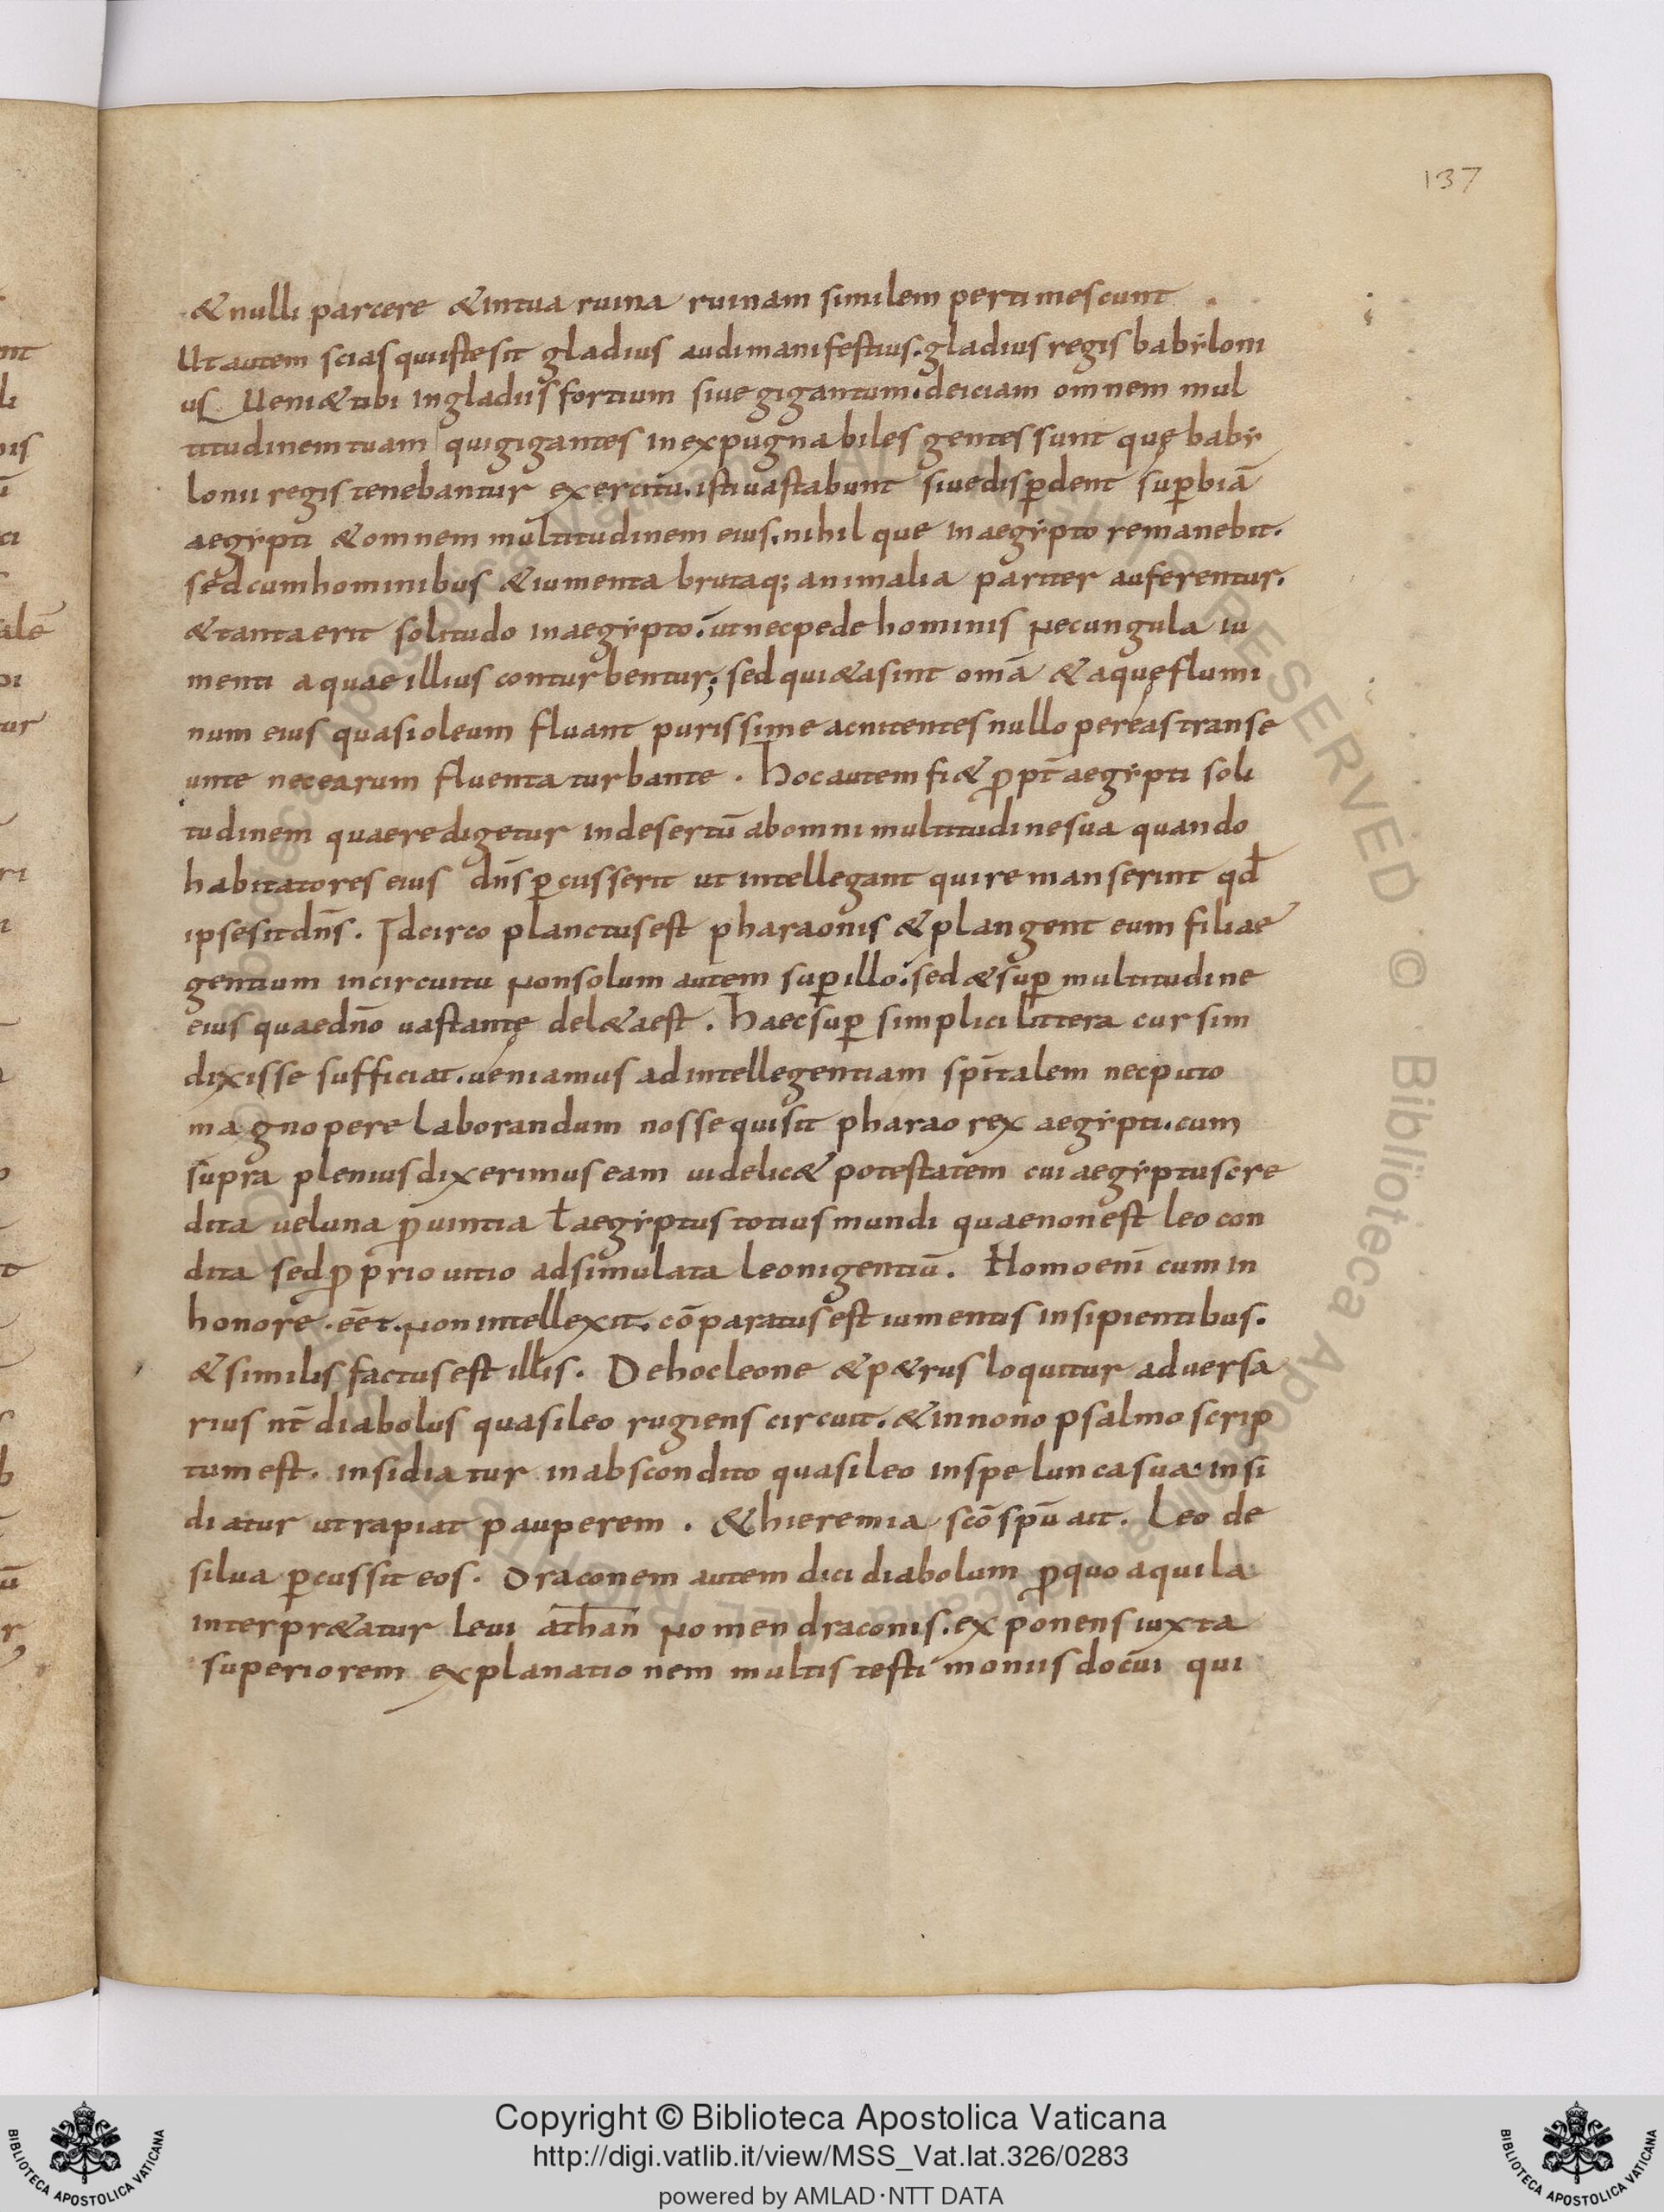 137
& nulli parcere & in tua ruina ruinam similem pertimescunt .
Ut autem scias qui iste sit gladius audi manifestius. gladius regis babẏloni
us Ueni & tibi in gladiis fortium siue gigantum. deiciam omnem mul
titudinem tuam qui gigantes inexpugnabiles gentes sunt quę babẏ
lonii regis tenebantur exercitu. isti uastabunt siue disꝑdent suꝑbiā
aegẏpti & omnem multitudinem eius. nihil que in aegẏpto remanebit.
sed cum hominibus & iumenta brutaq; animalia pariter auferentur.
& tanta erit solitudo in aegẏpto. ut nec pede hominis nec ungula iu
menti aquae illius conturbentur; sed qui&a sint om̄a & aquę flumi
num eius quasi oleum fluant purissime ac nitentes nullo per eas transe
unte nec earum fluenta turbante . hoc autem fi& ꝓpt̄ aegẏpti soli
tudinem quae redigetur in desertū ab omni multitudine sua quando
habitatores eius dn̄s ꝑcusserit ut intellegant qui remanserint qđ
ipse sit dn̄s. Idcirco planctus est pharaonis & plangent eum filiae
gentium in circuitu non solum autem suꝑ illo. sed & suꝑ multitudine
eius quae dn̄o uastantę del&a est . haec suꝑ simplici littera cursim
dixisse sufficiat. ueniamus ad intellegentiam sp̄italem nec puto
magnopere laborandum nosse qui sit pharao rex aegẏpti. cum
supra plenius dixerimus eam uidelic& potestatem cui aegẏptus cre
dita uel una ꝓuintia ł aegẏptus totius mundi quae non est leo con
dita sed ꝓprio uitio adsimulata leoni gentiū. Homo eni̅ cum in
honore. eēt. non intellexit. cōparatus est iumentis insipientibus.
& similis factus est illis. De hoc leone & p&rus loquitur aduersa
rius nt̄ diabolus quasi leo rugiens circuit. & in nono psalmo scrip
tum est. insidiatur in abscondito quasi leo in spelunca sua. insi
diatur ut rapiat pauperem . & hieremia sc̄o sp̄u ait. Leo de
silua ꝑcussit eos. Draconem autem dici diabolum ꝓ quo aquila
interpr&atur leui ath̄an nomen draconis. exponens iuxta
superiorem explanationem multis testimoniis docui qui
Copyright © Biblioteca Apostolica Vaticana
http://digi.vatlib.it/view/MSS_Vat.lat.326/0283
powered by AMLAD·NTT DATA
BIBLIOTECA APOSTOLICA VATICANA
BIBLIOTECA APOSTOLICA VATICANA